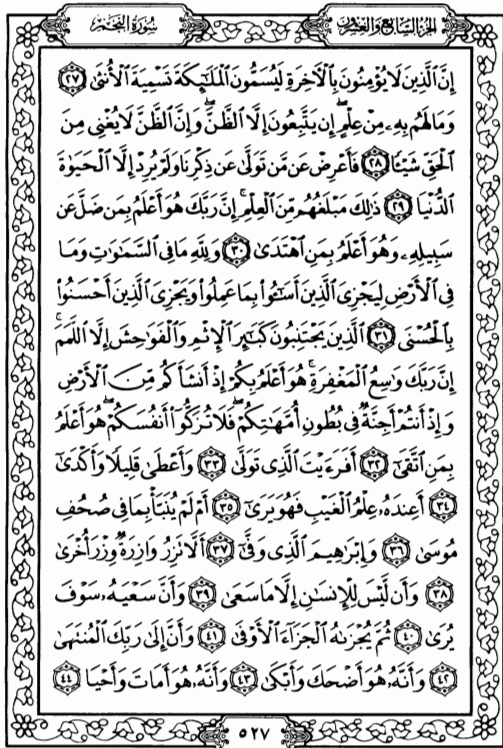 الجزء السابع والعشرون
سورة النجم
إِنَّ ٱلَّذِينَ لَا يُؤْمِنُونَ بِٱلْءَاخِرَةِ لَيُسَمُّونَ ٱلْمَلَٰٓئِكَةَ تَسْمِيَةَ ٱلْأُنثَىٰ ٢٧
وَمَا لَهُم بِهِۦ مِنْ عِلْمٍ ۖ إِن يَتَّبِعُونَ إِلَّا ٱلظَّنَّ ۖ وَإِنَّ ٱلظَّنَّ لَا يُغْنِى مِنَ
ٱلْحَقِّ شَيْـًٔا ٢٨ فَأَعْرِضْ عَن مَّن تَوَلَّىٰ عَن ذِكْرِنَا وَلَمْ يُرِدْ إِلَّا ٱلْحَيَوٰةَ
ٱلدُّنْيَا ٢٩ ذَٰلِكَ مَبْلَغُهُم مِّنَ ٱلْعِلْمِ ۚ إِنَّ رَبَّكَ هُوَ أَعْلَمُ بِمَن ضَلَّ عَن
سَبِيلِهِۦ وَهُوَ أَعْلَمُ بِمَنِ ٱهْتَدَىٰ ٣٠ وَلِلَّهِ مَا فِى ٱلسَّمَٰوَٰتِ وَمَا
فِى ٱلْأَرْضِ لِيَجْزِىَ ٱلَّذِينَ أَسَٰٓـُٔوا۟ بِمَا عَمِلُوا۟ وَيَجْزِىَ ٱلَّذِينَ أَحْسَنُوا۟
بِٱلْحُسْنَى ٣١ ٱلَّذِينَ يَجْتَنِبُونَ كَبَٰٓئِرَ ٱلْإِثْمِ وَٱلْفَوَٰحِشَ إِلَّا ٱللَّمَمَ ۚ
إِنَّ رَبَّكَ وَٰسِعُ ٱلْمَغْفِرَةِ ۚ هُوَ أَعْلَمُ بِكُمْ إِذْ أَنشَأَكُم مِّنَ ٱلْأَرْضِ
وَإِذْ أَنتُمْ أَجِنَّةٌ فِى بُطُونِ أُمَّهَٰتِكُمْ ۖ فَلَا تُزَكُّوٓا۟ أَنفُسَكُمْ ۖ هُوَ أَعْلَمُ
بِمَنِ ٱتَّقَىٰٓ ٣٢ أَفَرَءَيْتَ ٱلَّذِى تَوَلَّىٰ ٣٣ وَأَعْطَىٰ قَلِيلًا وَأَكْدَىٰٓ
٣٤ أَعِندَهُۥ عِلْمُ ٱلْغَيْبِ فَهُوَ يَرَىٰٓ ٣٥ أَمْ لَمْ يُنَبَّأْ بِمَا فِى صُحُفِ
مُوسَىٰ ٣٦ وَإِبْرَٰهِيمَ ٱلَّذِى وَفَّىٰٓ ٣٧ أَلَّا تَزِرُ وَازِرَةٌ وِزْرَ أُخْرَىٰ
٣٨ وَأَن لَّيْسَ لِلْإِنسَٰنِ إِلَّا مَا سَعَىٰ ٣٩ وَأَنَّ سَعْيَهُۥ سَوْفَ
يُرَىٰ ٤٠ ثُمَّ يُجْزَىٰهُ ٱلْجَزَآءَ ٱلْأَوْفَىٰ ٤١ وَأَنَّ إِلَىٰ رَبِّكَ ٱلْمُنتَهَىٰ
٤٢ وَأَنَّهُۥ هُوَ أَضْحَكَ وَأَبْكَىٰ ٤٣ وَأَنَّهُۥ هُوَ أَمَاتَ وَأَحْيَا ٤٤
٥٢٧